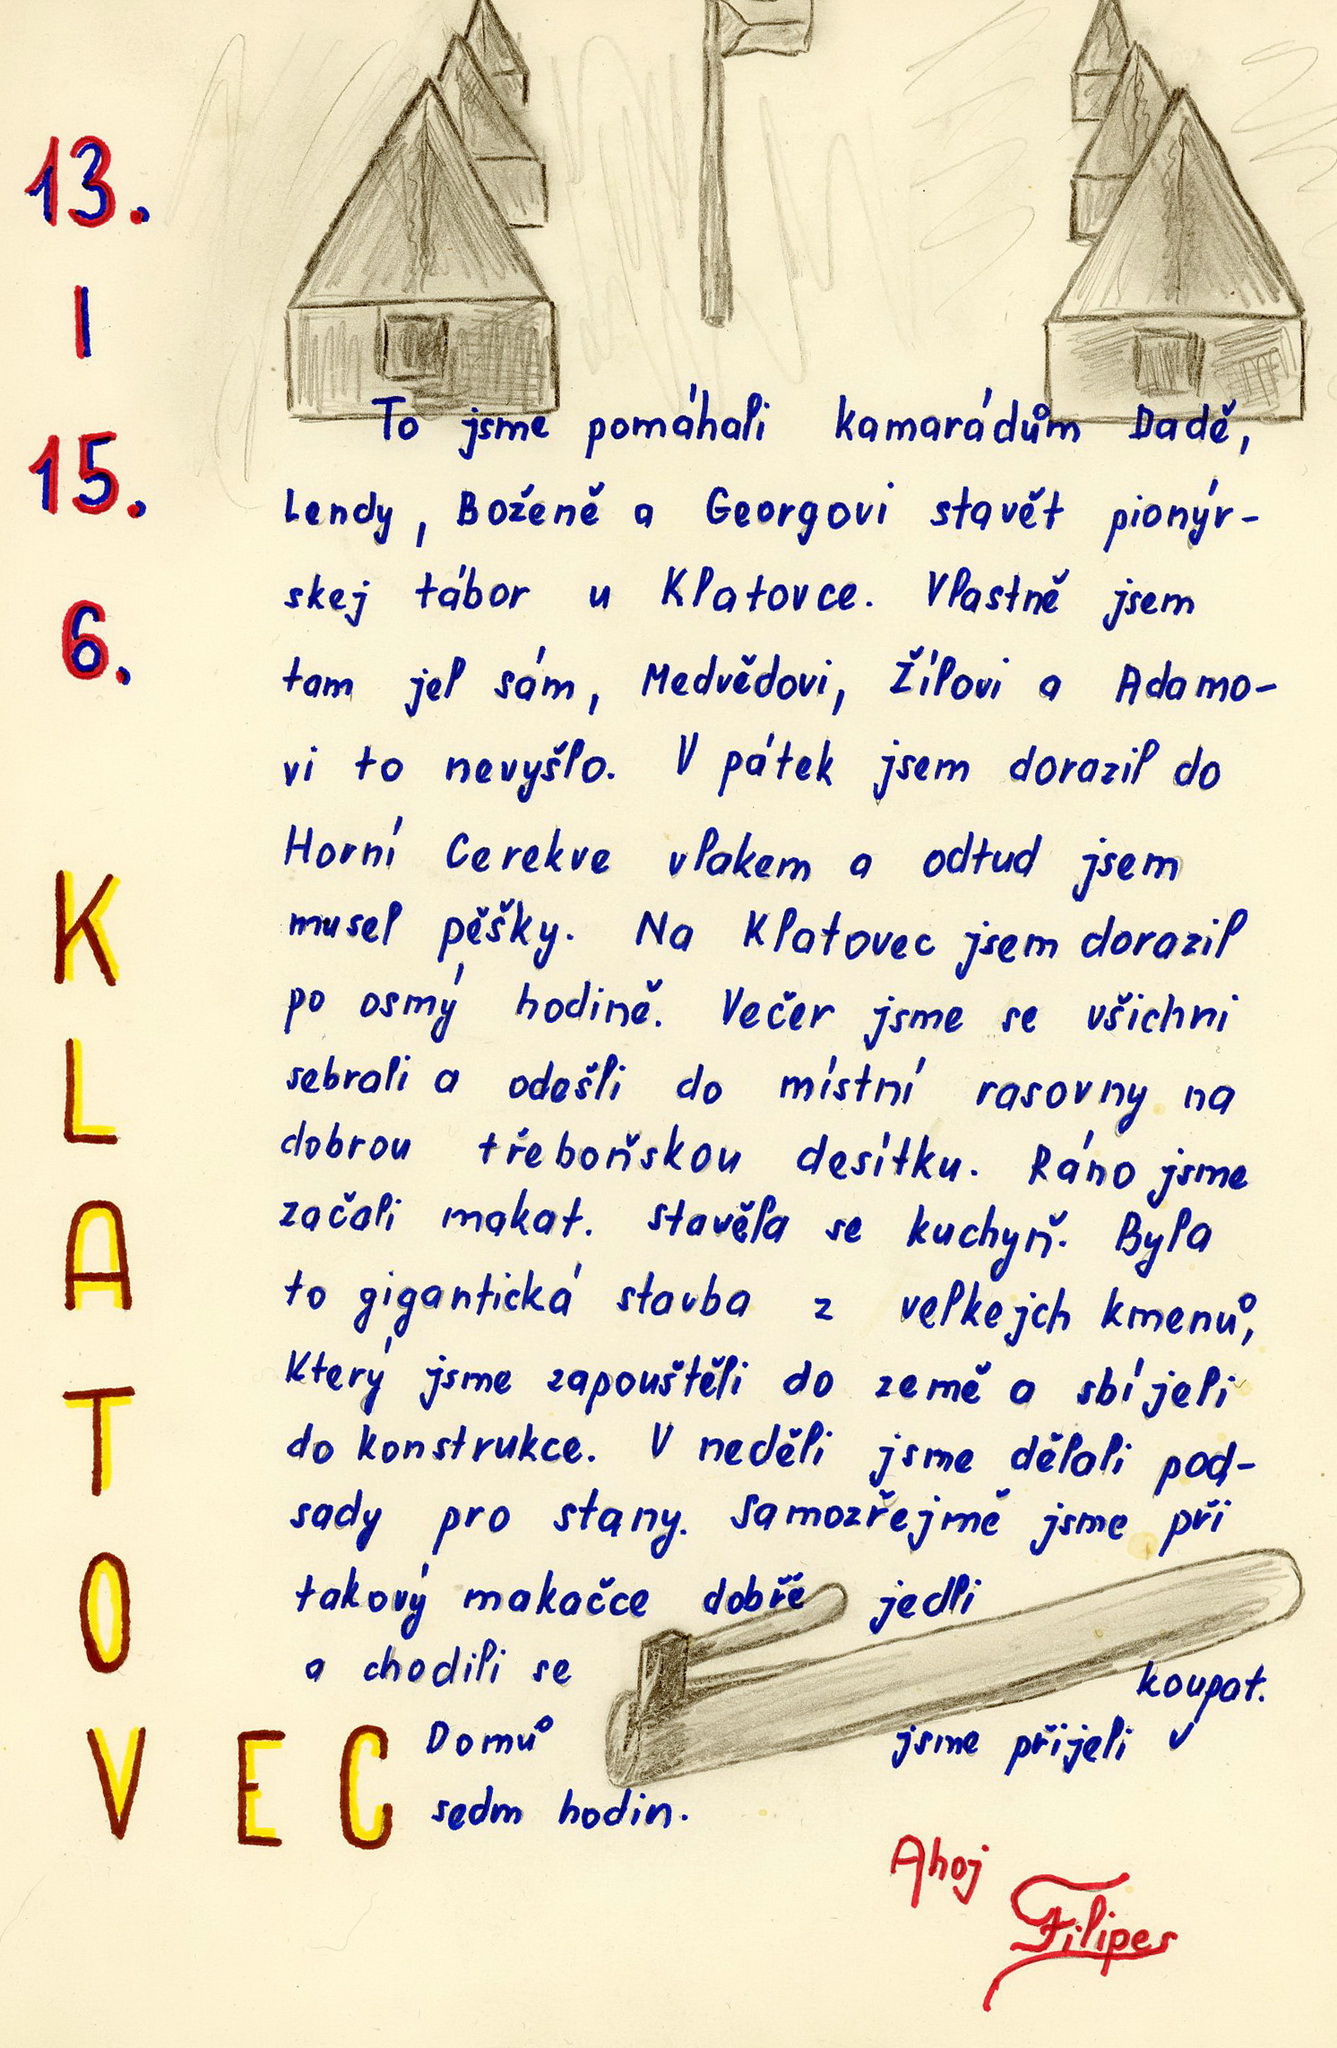 13.
-
15.
6.
KLATOVEC
To jsme pomáhali kamarádům Dadě,
Lendy, Boženě a Georgovi stavět pionýr-
skej tábor u Klatovce. Vlastně jsem
tam jel sám, Medvědovi, Žílovi a Adamo-
vi to nevyšlo. V pátek jsem dorazil do
Horní Cerekve vlakem a odtud jsem
musel pěšky. Na Klatovec jsem dorazil
po osmý hodině. Večer jsme se všichni
sebrali a odešli do místní rasovny na
dobrou třeboňskou desítku. Ráno jsme
začali makat. Stavěla se kuchyň. Byla
to gigantická stavba z velkejch kmenů,
který jsme zapouštěli do země a sbíjeli
do konstrukce. V neděli jsme dělali pod-
sady pro stany. Samozřejmě jsme při
takový makačce dobře jedli
a chodili se koupat.
Domů jsme přijeli
sedm hodin.
Ahoj
Filipes